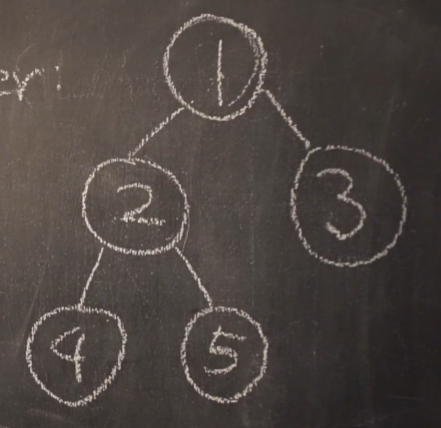 er:
1
2 3
4 5